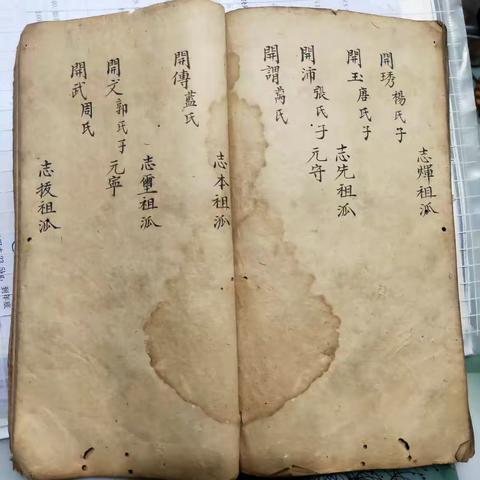 志煇祖派
開琇 楊氏 子
開玉 唐氏 子
志先祖派
開沛 張氏 子 元守
開謂 萬氏
志本祖派
開傳 藍氏
志璽祖派
開文 郭氏 子 元寧
開武 周氏
志拔祖派